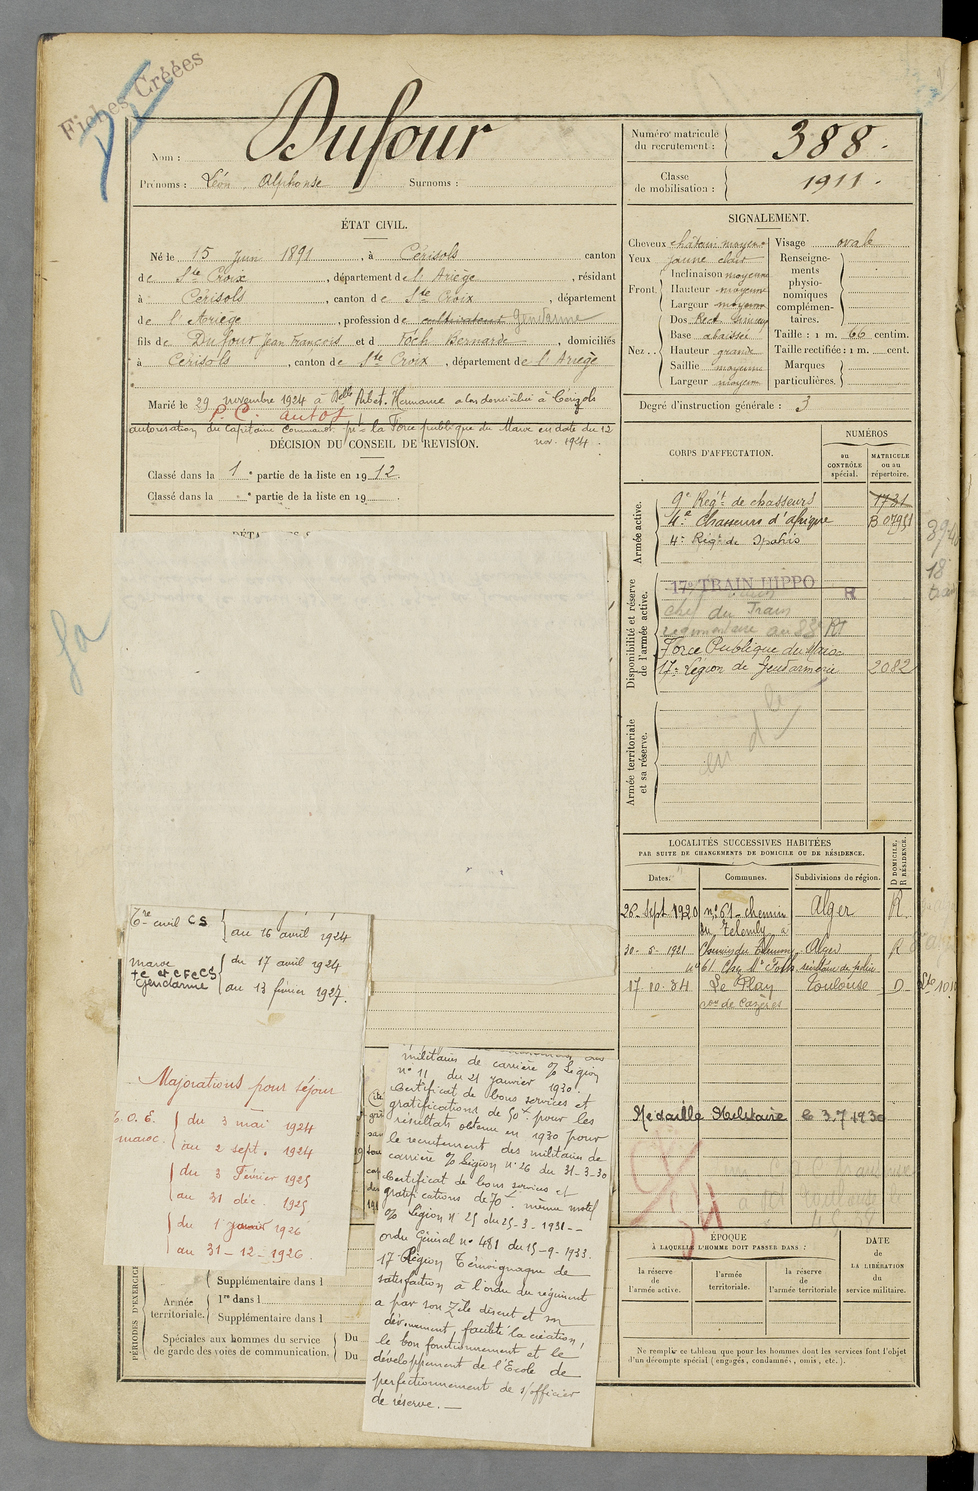 Fiches Créées
Nom : Dufour
Prénoms : Léon Alphonse Surnoms :
Numéro matricule du recrutement : 388.
Classe de mobilisation : 1911.
ÉTAT CIVIL.
Né le 15 Juin 1891, à Cérisols canton
de Ste Croix, département de l'Ariège, résidant
à Cérisols, canton de Ste Croix, département
de l'Ariège, profession de cultivateur Gendarme
fils de Dufour Jean François et d Foch Bernarde, domiciliés
à Cérisols, canton de Ste Croix, département de l'Ariège
Marié le 29 novembre 1924 à Delle Aubet Hermance a lors domicilié à Cérizols
P.C. autos
autorisation du Capitaine Command' pr la Force publique du Maroc en date du 12
nov. 1924.
DÉCISION DU CONSEIL DE REVISION.
Classé dans la 1e partie de la liste en 1912.
Classé dans la e partie de la liste en 19
SIGNALEMENT.
Cheveux châtain moyens
Yeux jaune clair
Front. Inclinaison moyenne
Hauteur moyenne
Largeur moyenne
Nez.. Dos Rect. Sinueux
Base abaissée
Hauteur grande
Saillie moyenne
Largeur moyenne
Visage ovale
Renseignements physionomiques complémentaires.
Taille : 1 m. 66 centim.
Taille rectifiée : 1 m. cent.
Marques particulières.
Degré d'instruction générale : 3
CORPS D'AFFECTATION.
NUMÉROS
au CONTRÔLE spécial.
MATRICULE ou au répertoire.
Armée active.
9e Régt de chasseurs 1731
4e Chasseurs d'afrique B 07951
4e Régt de Spahis
Disponibilité et réserve de l'armée active.
17e TRAIN HIPPO R
du Train
au 83e RI
Force Publique du Maroc
17e Légion de Gendarmerie 2082
Armée territoriale et sa réserve.
LOCALITÉS SUCCESSIVES HABITÉES
PAR SUITE DE CHANGEMENTS DE DOMICILE OU DE RÉSIDENCE.
Dates. Communes. Subdivisions de région. D DOMICILE, R RÉSIDENCE.
26 Sept 1920 n° 61 chemin Alger R.
du Telemly à
30-5-1921 Alger R
17-10-34 Le Plan Toulouse D
con de Cazères
Médaille Militaire 3.7.1930
ÉPOQUE
À LAQUELLE L'HOMME DOIT PASSER DANS :
la réserve de l'armée active.
l'armée territoriale.
la réserve de l'armée territoriale
DATE de LA LIBÉRATION du service militaire.
Ne remplir ce tableau que pour les hommes dont les services font l'objet
d'un décompte spécial (engagés, condamnés, omis, etc.).
Tre civil CS au 16 avril 1924
maroc
te et CFC CS
Gendarme
du 17 avril 1924
au 13 février 1927.
Majorations pour séjour
T.O.E.
maroc.
du 3 mai 1924
au 2 sept. 1924
du 3 Février 1925
au 31 déc. 1925
du 1 janvier 1926
au 31-12-1926.
militaires de carrière O/ Légion
n° 11 du 21 janvier 1930.
Certificat de bons services et
gratifications de 50f pour les
résultats obtenu en 1930 pour
le recrutement des militaires de
carrière O/ Légion n° 26 du 31-3-30
Certificat de bons services et
gratifications de 70f même motif
O/ Légion N° 25 du 25-3-1931--
ordre Général n° 481 du 15-9-1933.
17e Légion Témoignage de
satisfaction à l'ordre du régiment
a par son zèle discret et son
dévouement facilité la création,
le bon fonctionnement et le
développement de l'École de
perfectionnement de s/officier
de réserve.—
PÉRIODES D'EXERCICE
Supplémentaire dans l
Armée territoriale.
1re dans l
Supplémentaire dans l
Spéciales aux hommes du service
de garde des voies de communication.
Du
Du